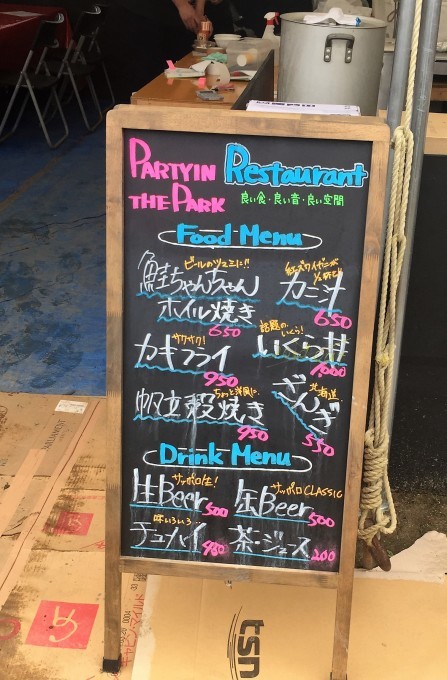 PARTYIN
THE PARK
Restaurant
良い食・良い音・良い空間
Food Menu
ビールのツマミに!!
鮭ちゃんちゃん
ホイル焼き
650
カニ汁
650
サクサク!
カキフライ
950
話題の
いくら!
いくら丼
1000
ちょっと洋風に
帆立殻焼き
950
北海道
ざんぎ
550
Drink Menu
サッポロ生!
生Beer
500
サッポロCLASSIC
缶Beer
500
味いろいろ
チューハイ
450
茶・ジュース
200
tsn